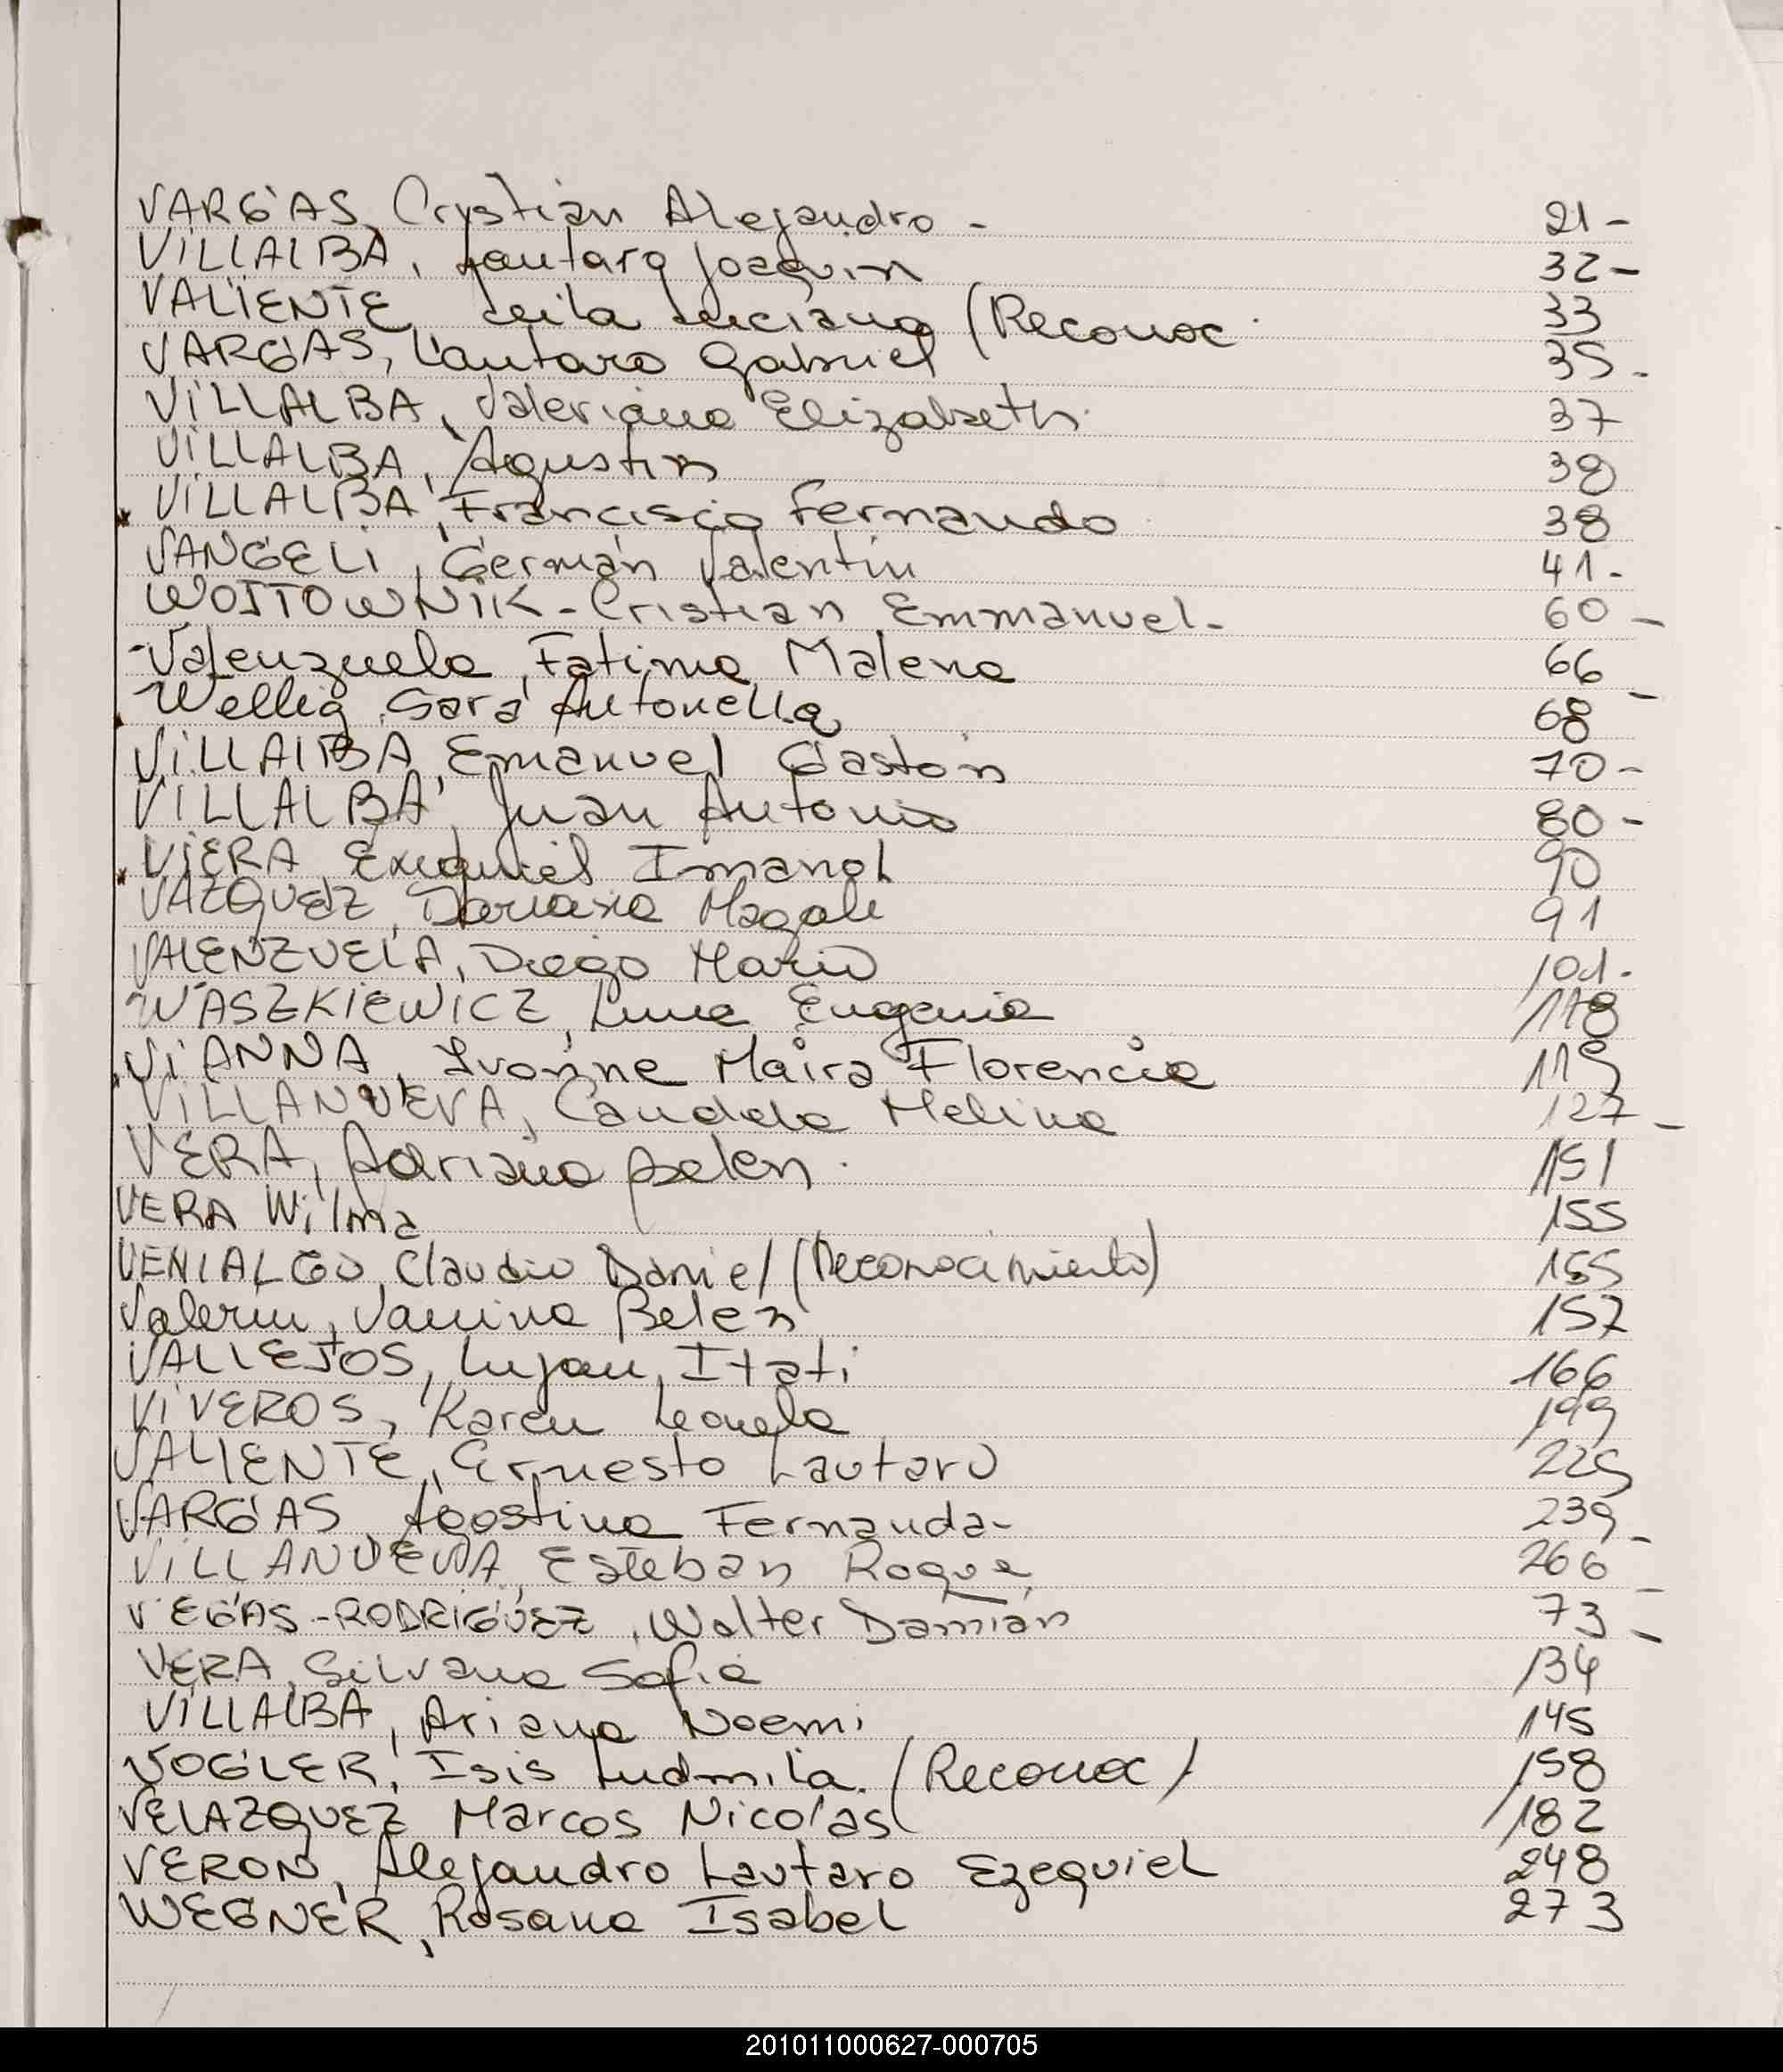 VARGAS, Crystian Alejandro - 21 -
VILLALBA, Lautaro Joaquin 32 -
VALIENTE, Leila Luciana (Reconoc 33
VARGAS, Lautaro Gabriel 35 -
VILLALBA, Valeriana Elizabeth. 37
VILLALBA, Agustin 38
VILLALBA, Francisco Fernando 38
VANGELI, Germán Valentin 41 -
WOJTOWNIK - Cristian Emmanuel - 60 -
- Valenzuela, Fatima Malena 66 -
Wellig, Sara Antonella 68
VILLALBA, Emanuel Gastón 70 -
VILLALBA, Juan Antonio 80 -
VIERA, Exequiel Imanol 90
VAZQUEZ, Dariana Magali 91
VALENZUELA, Diego Mario 101 -
WASZKIEWICZ, Luna Eugenia 118
VIANNA, Ivonne Maira Florencia 119
VILLANUEVA, Candela Melina 127 -
VERA, Adriana Belen. 151
VERA Wilma 155
VENIALGO, Claudio Daniel (Reconocimiento) 155
Valerin, Vanina Belen 157
VALLEJOS, Lujan, Itati 166
VIVEROS, Karen Leonela 199
VALIENTE, Ernesto Lautaro 225
VARGAS, Agostina Fernanda - 239 -
VILLANUEVA, Esteban Roque 266 -
VEGAS - RODRIGUEZ, Walter Damián 73 -
VERA, Silvana Sofia 134
VILLALBA, Ariana Noemi 145
VOGLER, Isis Ludmila. (Reconoc) 158
VELAZQUEZ Marcos Nicolas 182
VERON, Alejandro Lautaro Ezequiel 248
WEGNER, Rosana Isabel 273
201011000627-000705